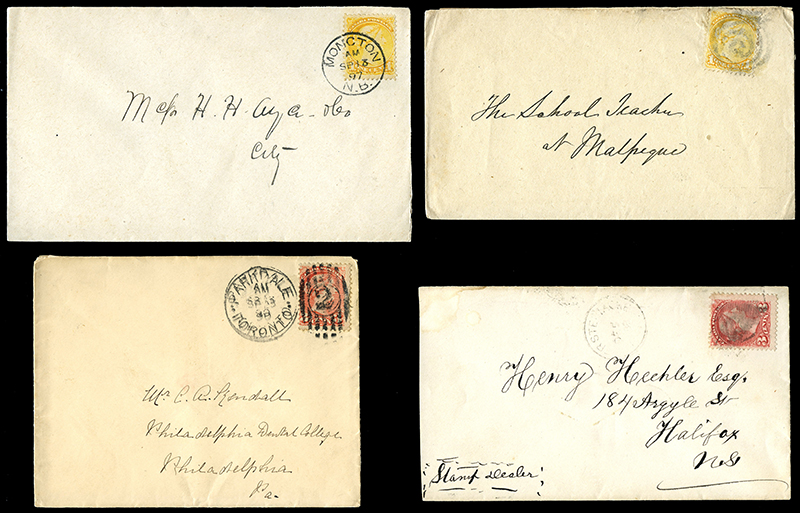 MONCTON
AM
SP 13
97
N.B.
H. H. Ayer
City
The School Teacher
at Malpeque
PARKDALE
AM
98
TORONTO
2
Mr C. A. Kendall
Philadelphia Dental College
Philadelphia
Pa.
3
Henry Hechler Esq.
184 Argyle St
Halifax
NS
Stamp Dealer